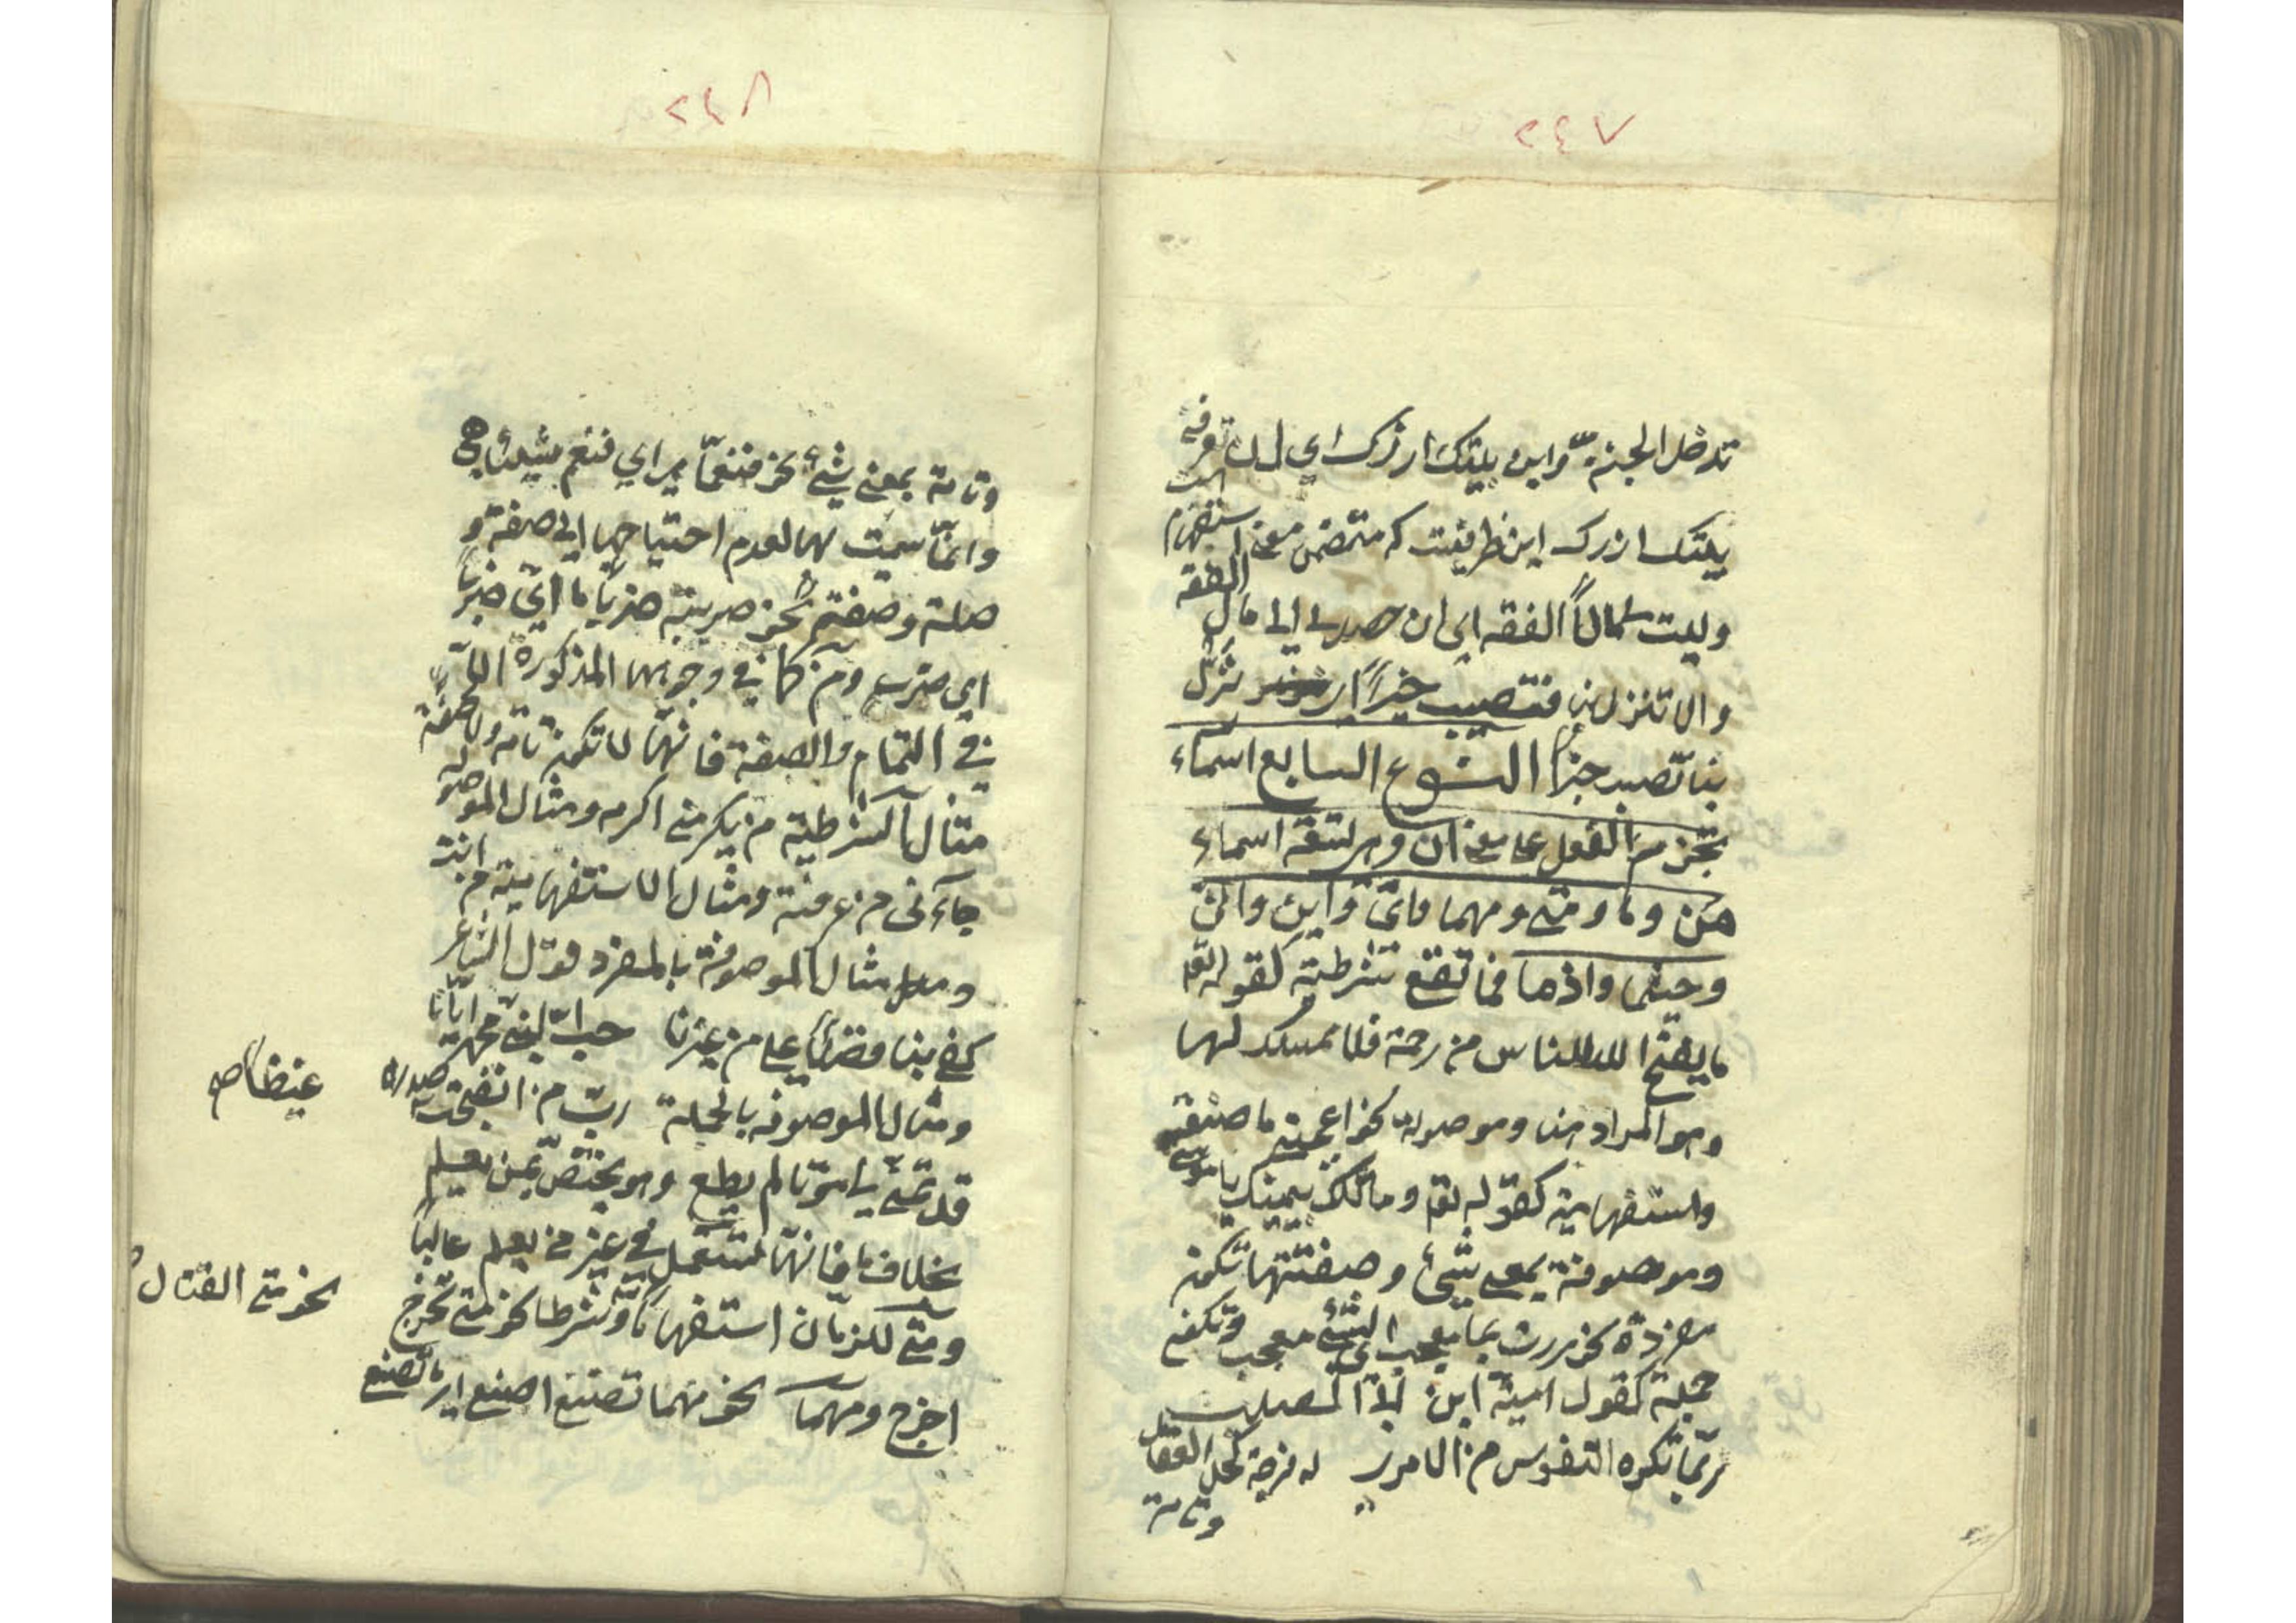 ٢٤٧
تدخل الجنة واين بيتك ازرك اي ان تعرفه
بيتك ازرك اين ظرفيت كه متضمن معنى استفهام است
وليت لي مالا انفقه اي ان حصل لي مال انفقه
والا تنزل بنا فتصيب خيرا اي نزل
بنا تصب خيرا النوع السابع اسماء
تجزم الفعل على معنى ان وهي تسعة اسماء
من وما ومتى ومهما واي واين وانى
وحيثما واذما فما تقع شرطية كقوله تع
ما يفتح الله للناس من رحمة فلا ممسك لها
وهو المراد هنا وموصولة نحو اعجبني ما صنعته
واستفهامية كقوله تع وما تلك بيمينك يا موسى
وموصوفة بمعنى شئ وصفتها تكون
مفردة نحو مررت بما معجب اي بشئ معجب وتكون
جملة كقول امية ابن ابي الصلت
ربما تكره النفوس من الامر له فرجة كحل العقال
وتامة
٢٤٨
وتامة بمعنى شئ نحو فنعما هي اي فنعم شيئا هي
وانما سميت بها لعدم احتياجها الى صفة و
صلة وصفتها نحو ضربته ضربا ما اي ضربا
اي ضرب ومن كما في وجوهها المذكورة الا
في التمام والصفة فانها لا تكون تامة ولا صفة
مثال الشرطية من يكرمني اكرمه ومثال الموصولة
جاءني من عرفته ومثال الاستفهامية من انت
ومثال الموصوفة بالمفرد قول الشاعر
كفى بنا فضلا على من غيرنا حب النبي محمد ايانا
ومثال الموصوفة بالجملة رب من انضجت غيظا صدره
قد تمنى لي موتا لم يطع وهو يختص بمن يعلم
بخلاف ما فانها تستعمل في غير من يعلم غالبا
ومتى للزمان استفهاما وشرطا نحو متى تخرج
نحو متى القتال
اخرج ومهما نحو مهما تصنع اصنع اي ما تصنع